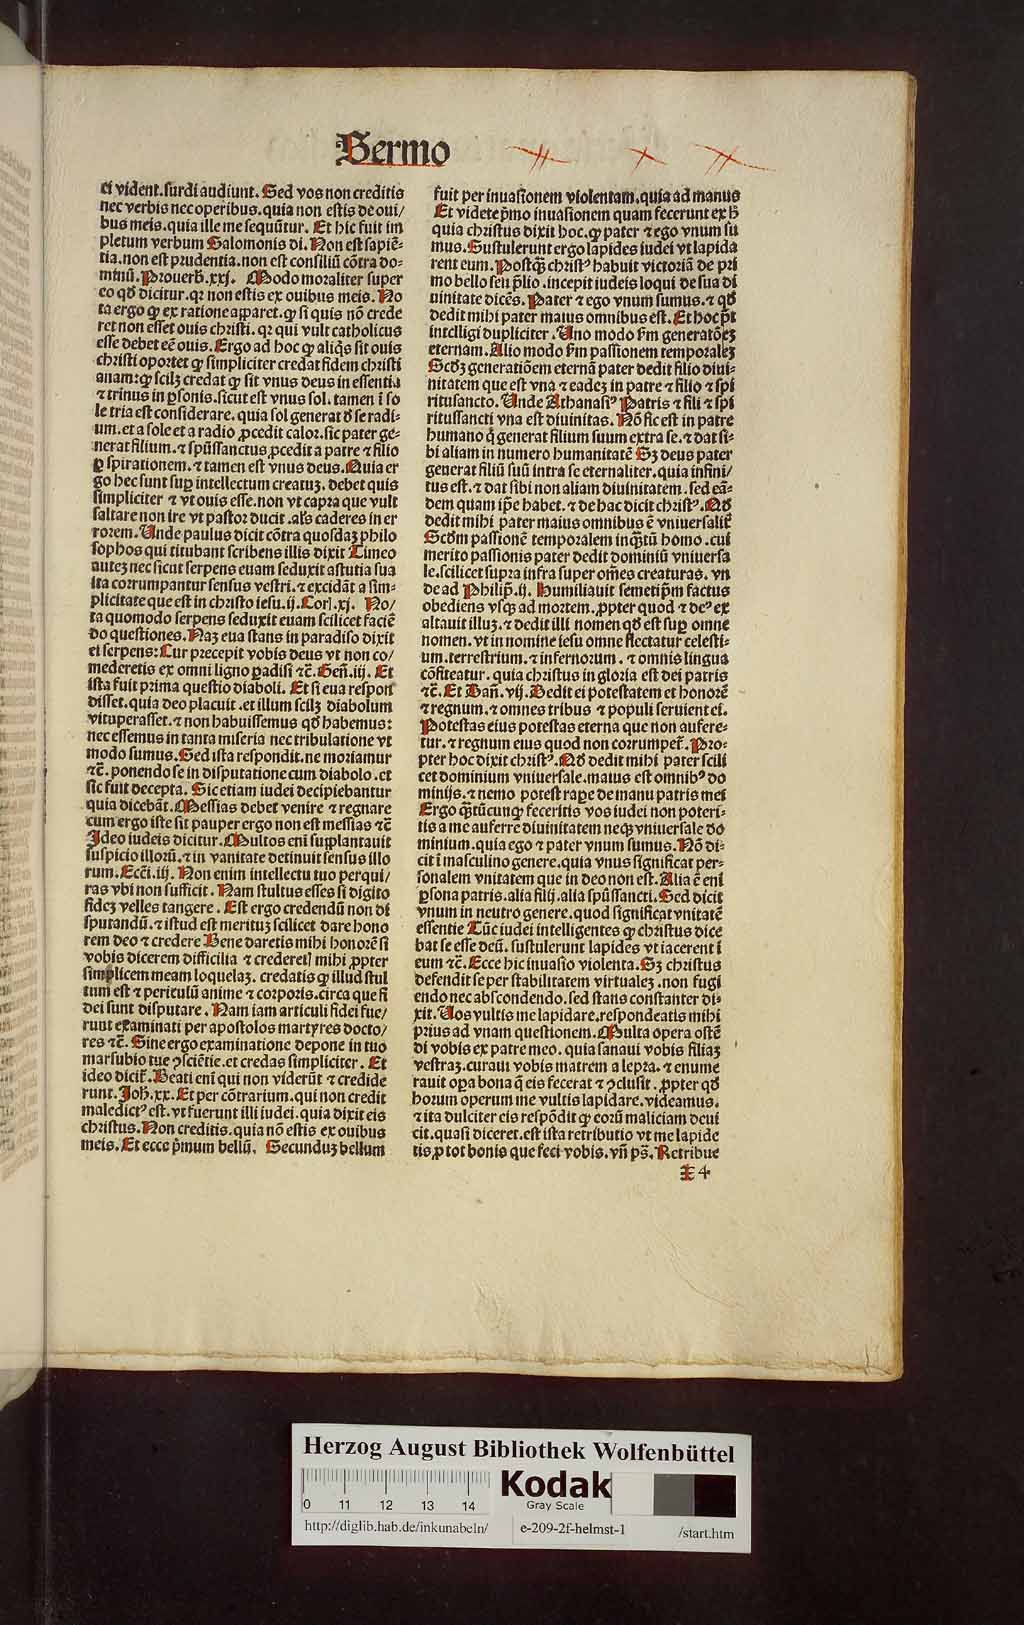 Sermo
ei vident. surdi audiunt. Sed vos non creditis
nec verbis nec operibus. quia non estis de oui/
bus meis. quia ille me sequũtur. Et hic fuit im
pletum verbum Salomonis di. Non est sapiẽ-
tia. non est prudentia. non est consiliũ cõtra do-
minũ. Prouerb̃. xxj. Modo moraliter super
eo qđ dicitur. qꝛ non estis ex ouibus meis. No
ta ergo ꝙ ex ratione apparet. ꝙ si quis nõ crede
ret non esset ouis christi. qꝛ qui vult catholicus
esse debet eẽ ouis. Ergo ad hoc ꝙ aliq̃s sit ouis
christi oportet ꝙ simpliciter credat fidem christi
anam: ꝙ scilꝫ credat ꝙ sit vnus deus in essentia
⁊ trinus in ꝑsonis. sicut est vnus sol. tamen ĩ so
le tria est considerare. quia sol generat đ se radi-
um. et a sole et a radio ꝓcedit calor. sic pater ge-
nerat filium. ⁊ spũssanctus ꝓcedit a patre ⁊ filio
ꝑ spirationem. ⁊ tamen est vnus deus. Quia er
go hec sunt suꝑ intellectum creatuꝫ. debet quis
simpliciter ⁊ vt ouis esse. non vt capra que vult
saltare non ire vt pastor ducit. als caderes in er
rorem. Unde paulus dicit cõtra quosdaꝫ philo
sophos qui titubant scribens illis dixit Timeo
auteꝫ nec sicut serpens euam seduxit astutia sua
ita corrumpantur sensus vestri. ⁊ excidãt a sim-
plicitate que est in christo iesu. ij. Corĩ. xj. No/
ta quomodo serpens seduxit euam scilicet faciẽ
do questiones. Naꝫ eua stans in paradiso dixit
ei serpens: Cur precepit vobis deus vt non co/
mederetis ex omni ligno ꝑadisi ⁊c̃. Geñ. iij. Et
ista fuit prima questio diaboli. Et si eua respon
disset. quia deo placuit. et illum scilꝫ diabolum
vituperasset. ⁊ non habuissemus qđ habemus:
nec essemus in tanta miseria nec tribulatione vt
modo sumus. Sed ista respondit. ne moriamur
⁊c̃. ponendo se in disputatione cum diabolo. et
sic fuit decepta. Sic etiam iudei decipiebantur
quia dicebãt. Messias debet venire ⁊ regnare
cum ergo iste sit pauper ergo non est messias ⁊c̃
Ideo iudeis dicitur. Multos enĩ supplantauit
suspicio illorũ. ⁊ in vanitate detinuit sensus illo
rum. Ecci. iij. Non enim intellectu tuo perqui/
ras vbi non sufficit. Nam stultus esses si digito
fideꝫ velles tangere. Est ergo credendũ non di
sputandũ. ⁊ istud est merituꝫ scilicet dare hono
rem deo ⁊ credere Bene daretis mihi honorẽ si
vobis dicerem difficilia ⁊ crederetĩ mihi ꝓpter
simplicem meam loquelaꝫ. credatis ꝙ illud stul
tum est ⁊ periculũ anime ⁊ corporis. circa que fi
dei sunt disputare. Nam iam articuli fidei fue/
runt examinati per apostolos martyres docto/
res ⁊c̃. Sine ergo examinatione depone in tuo
marsubio tue ꝯsciẽtie. et credas simpliciter. Et
ideo dicit̃. Beati enĩ qui non viderũt ⁊ credide
runt. Joh̃. xx. Et per cõtrarium. qui non credit
maledictꝰ est. vt fuerunt illi iudei. quia dixit eis
christus. Non creditis. quia nõ estis ex ouibus
meis. Et ecce p̃mum bellũ. Secunduꝫ bellum
fuit per inuasionem violentam. quia ad manus
Et videte p̃mo inuasionem quam fecerunt ex
quia christus dixit hoc. ꝙ pater ⁊ ego vnum su
mus. Sustulerunt ergo lapides iudei vt lapida
rent eum. Postqꝫ christꝰ habuit victoriã de pri
mo bello seu p̃lio. incepit iudeis loqui de sua di
uinitate dicẽs. Pater ⁊ ego vnum sumus. ⁊ qđ
dedit mihi pater maius omnibus est. Et hoc p̃t
intelligi dupliciter. Uno modo fm generatõeꝫ
eternam. Alio modo fm passionem temporaleꝫ
Scđꝫ generatiõem eternã pater dedit filio diui-
nitatem que est vna ⁊ eadeꝫ in patre ⁊ filio ⁊ spi
ritusancto. Unde Athanasiꝰ Patris ⁊ fili ⁊ spi
ritussancti vna est diuinitas. Nõ sic est in patre
humano q̃ generat filium suum extra se. ⁊ dat si-
bi aliam in numero humanitatẽ Sꝫ deus pater
generat filiũ suũ intra se eternaliter. quia infini/
tus est. ⁊ dat sibi non aliam diuinitatem. sed eã-
dem quam ip̃e habet. ⁊ de hac dicit christꝰ. Qđ
dedit mihi pater maius omnibus ẽ vniuersalit̃
Scđm passionẽ temporalem inqꝫtũ homo. cui
merito passionis pater dedit dominiũ vniuersa
le. scilicet supra infra super om̃es creaturas. vn
de ad Philip̃. ij. Humiliauit semetip̃m factus
obediens vsqꝫ ad mortem. ꝓpter quod ⁊ deꝰ ex
altauit illuꝫ. ⁊ dedit illi nomen qđ est suꝑ omne
nomen. vt in nomine iesu omne flectatur celesti-
um. terrestrium. ⁊ infernorum. ⁊ omnis lingua
cõfiteatur. quia christus in gloria est dei patris
⁊c̃. Et Dañ. vij. Dedit ei potestatem et honorẽ
⁊ regnum. ⁊ omnes tribus ⁊ populi seruient ei.
Potestas eius potestas eterna que non aufere-
tur. ⁊ regnum eius quod non corrumpet̃. Pro-
pter hoc dixit christꝰ. Qđ dedit mihi pater scili
cet dominium vniuersale. maius est omnibꝰ do
minijs. ⁊ nemo potest raꝑe de manu patris mei
Ergo qꝫtũcunqꝫ feceritis vos iudei non poteri-
tis a me auferre diuinitatem neqꝫ vniuersale do
minium. quia ego ⁊ pater vnum sumus. Nõ di-
cit ĩ masculino genere. quia vnus significat per-
sonalem vnitatem que in deo non est. Alia ẽ enĩ
ꝑsona patris. alia filij. alia spũssancti. Sed dicit
vnum in neutro genere. quod significat vnitatẽ
essentie Tũc iudei intelligentes ꝙ christus dice
bat se esse deũ. sustulerunt lapides vt iacerent ĩ
eum ⁊c̃. Ecce hic inuasio violenta. Sꝫ christus
defendit se per stabilitatem virtualeꝫ. non fugi
endo nec abscondendo. sed stans constanter di-
xit. Uos vultis me lapidare. respondeatis mihi
prius ad vnam questionem. Multa opera ostẽ
di vobis ex patre meo. quia sanaui vobis filiaꝫ
vestraꝫ. curaui vobis matrem a lepra. ⁊ enume
rauit oꝑa bona q̃ eis fecerat ⁊ ꝯclusit. ꝓpter qđ
horum operum me vultis lapidare. videamus.
⁊ ita dulciter eis respõdit ꝙ eorũ maliciam deui
cit. quasi diceret. est ista retributio vt me lapide
tis ꝓ tot bonis que feci vobis. vñ ps̃. Retribue
X 4
Herzog August Bibliothek Wolfenbüttel
0 11 12 13 14
Kodak
Gray Scale
http://diglib.hab.de/inkunabeln/
e-209-2f-helmst-1
/start.htm